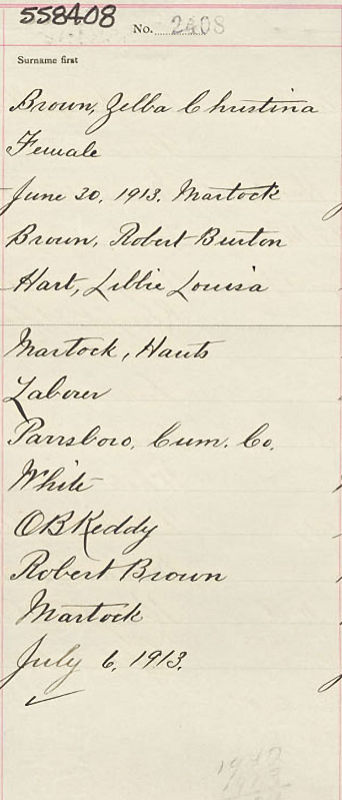 558408
No. 2408
Surname first
Brown, Zelba Christina
Female
June 20, 1913. Martock
Brown, Robert Burton
Hart, Lillie Louisa
Martock, Hants
Laborer
Parrsboro, Cum. Co.
White
OBKeddy
Robert Brown
Martock
July 6, 1913.